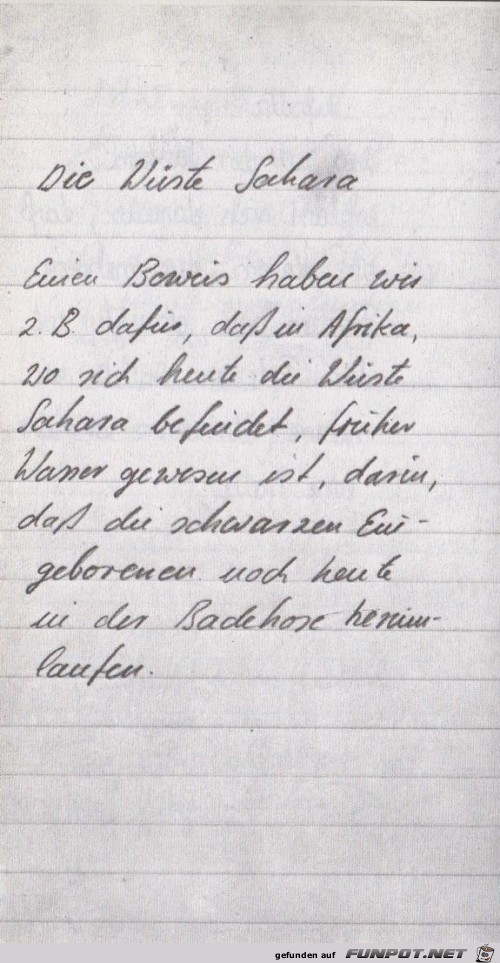 Die Wüste Sahara
Einen Beweis haben wir
z. B. dafür, daß in Afrika,
wo sich heute die Wüste
Sahara befindet, früher
Wasser gewesen ist, darin,
daß die schwarzen Ein-
geborenen noch heute
in der Badehose herum-
laufen.
gefunden auf FUNPOT.NET